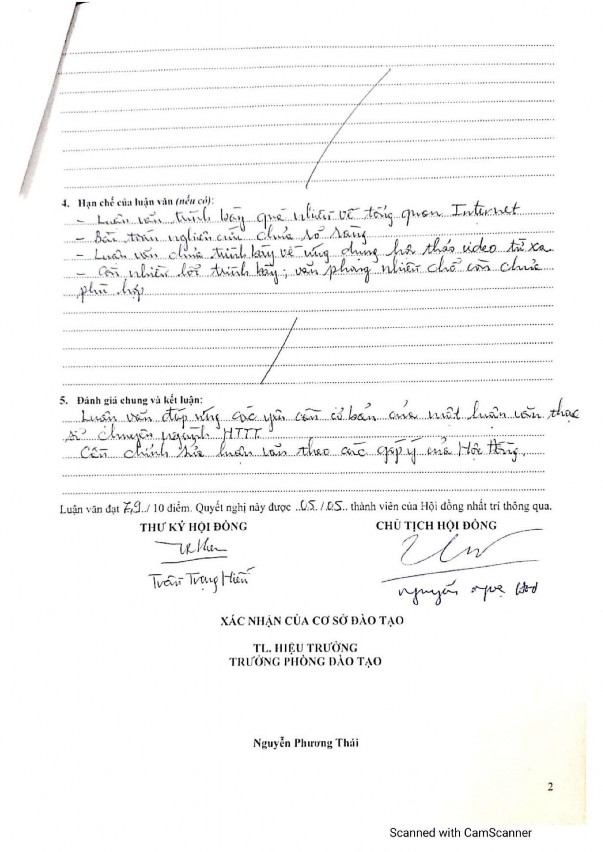 4. Hạn chế của luận văn (nếu có):
- Luận văn trình bày quá nhiều về tổng quan Internet
- Bài toán nghiên cứu chưa rõ ràng
- Luận văn chưa trình bày về ứng dụng hội thảo video từ xa
- Còn nhiều lỗi trình bày; văn phong nhiều chỗ còn chưa
phù hợp
5. Đánh giá chung và kết luận:
Luận văn đáp ứng các yêu cầu cơ bản của một luận văn thạc
sĩ chuyên ngành HTTT
Cần chỉnh sửa luận văn theo các góp ý của Hội đồng.
Luận văn đạt 7,9../ 10 điểm. Quyết nghị này được ..05./05.. thành viên của Hội đồng nhất trí thông qua.
THƯ KÝ HỘI ĐỒNG CHỦ TỊCH HỘI ĐỒNG
Trần Trọng Hiếu Nguyễn Ngọc
XÁC NHẬN CỦA CƠ SỞ ĐÀO TẠO
TL. HIỆU TRƯỞNG
TRƯỞNG PHÒNG ĐÀO TẠO
Nguyễn Phương Thái
2
Scanned with CamScanner